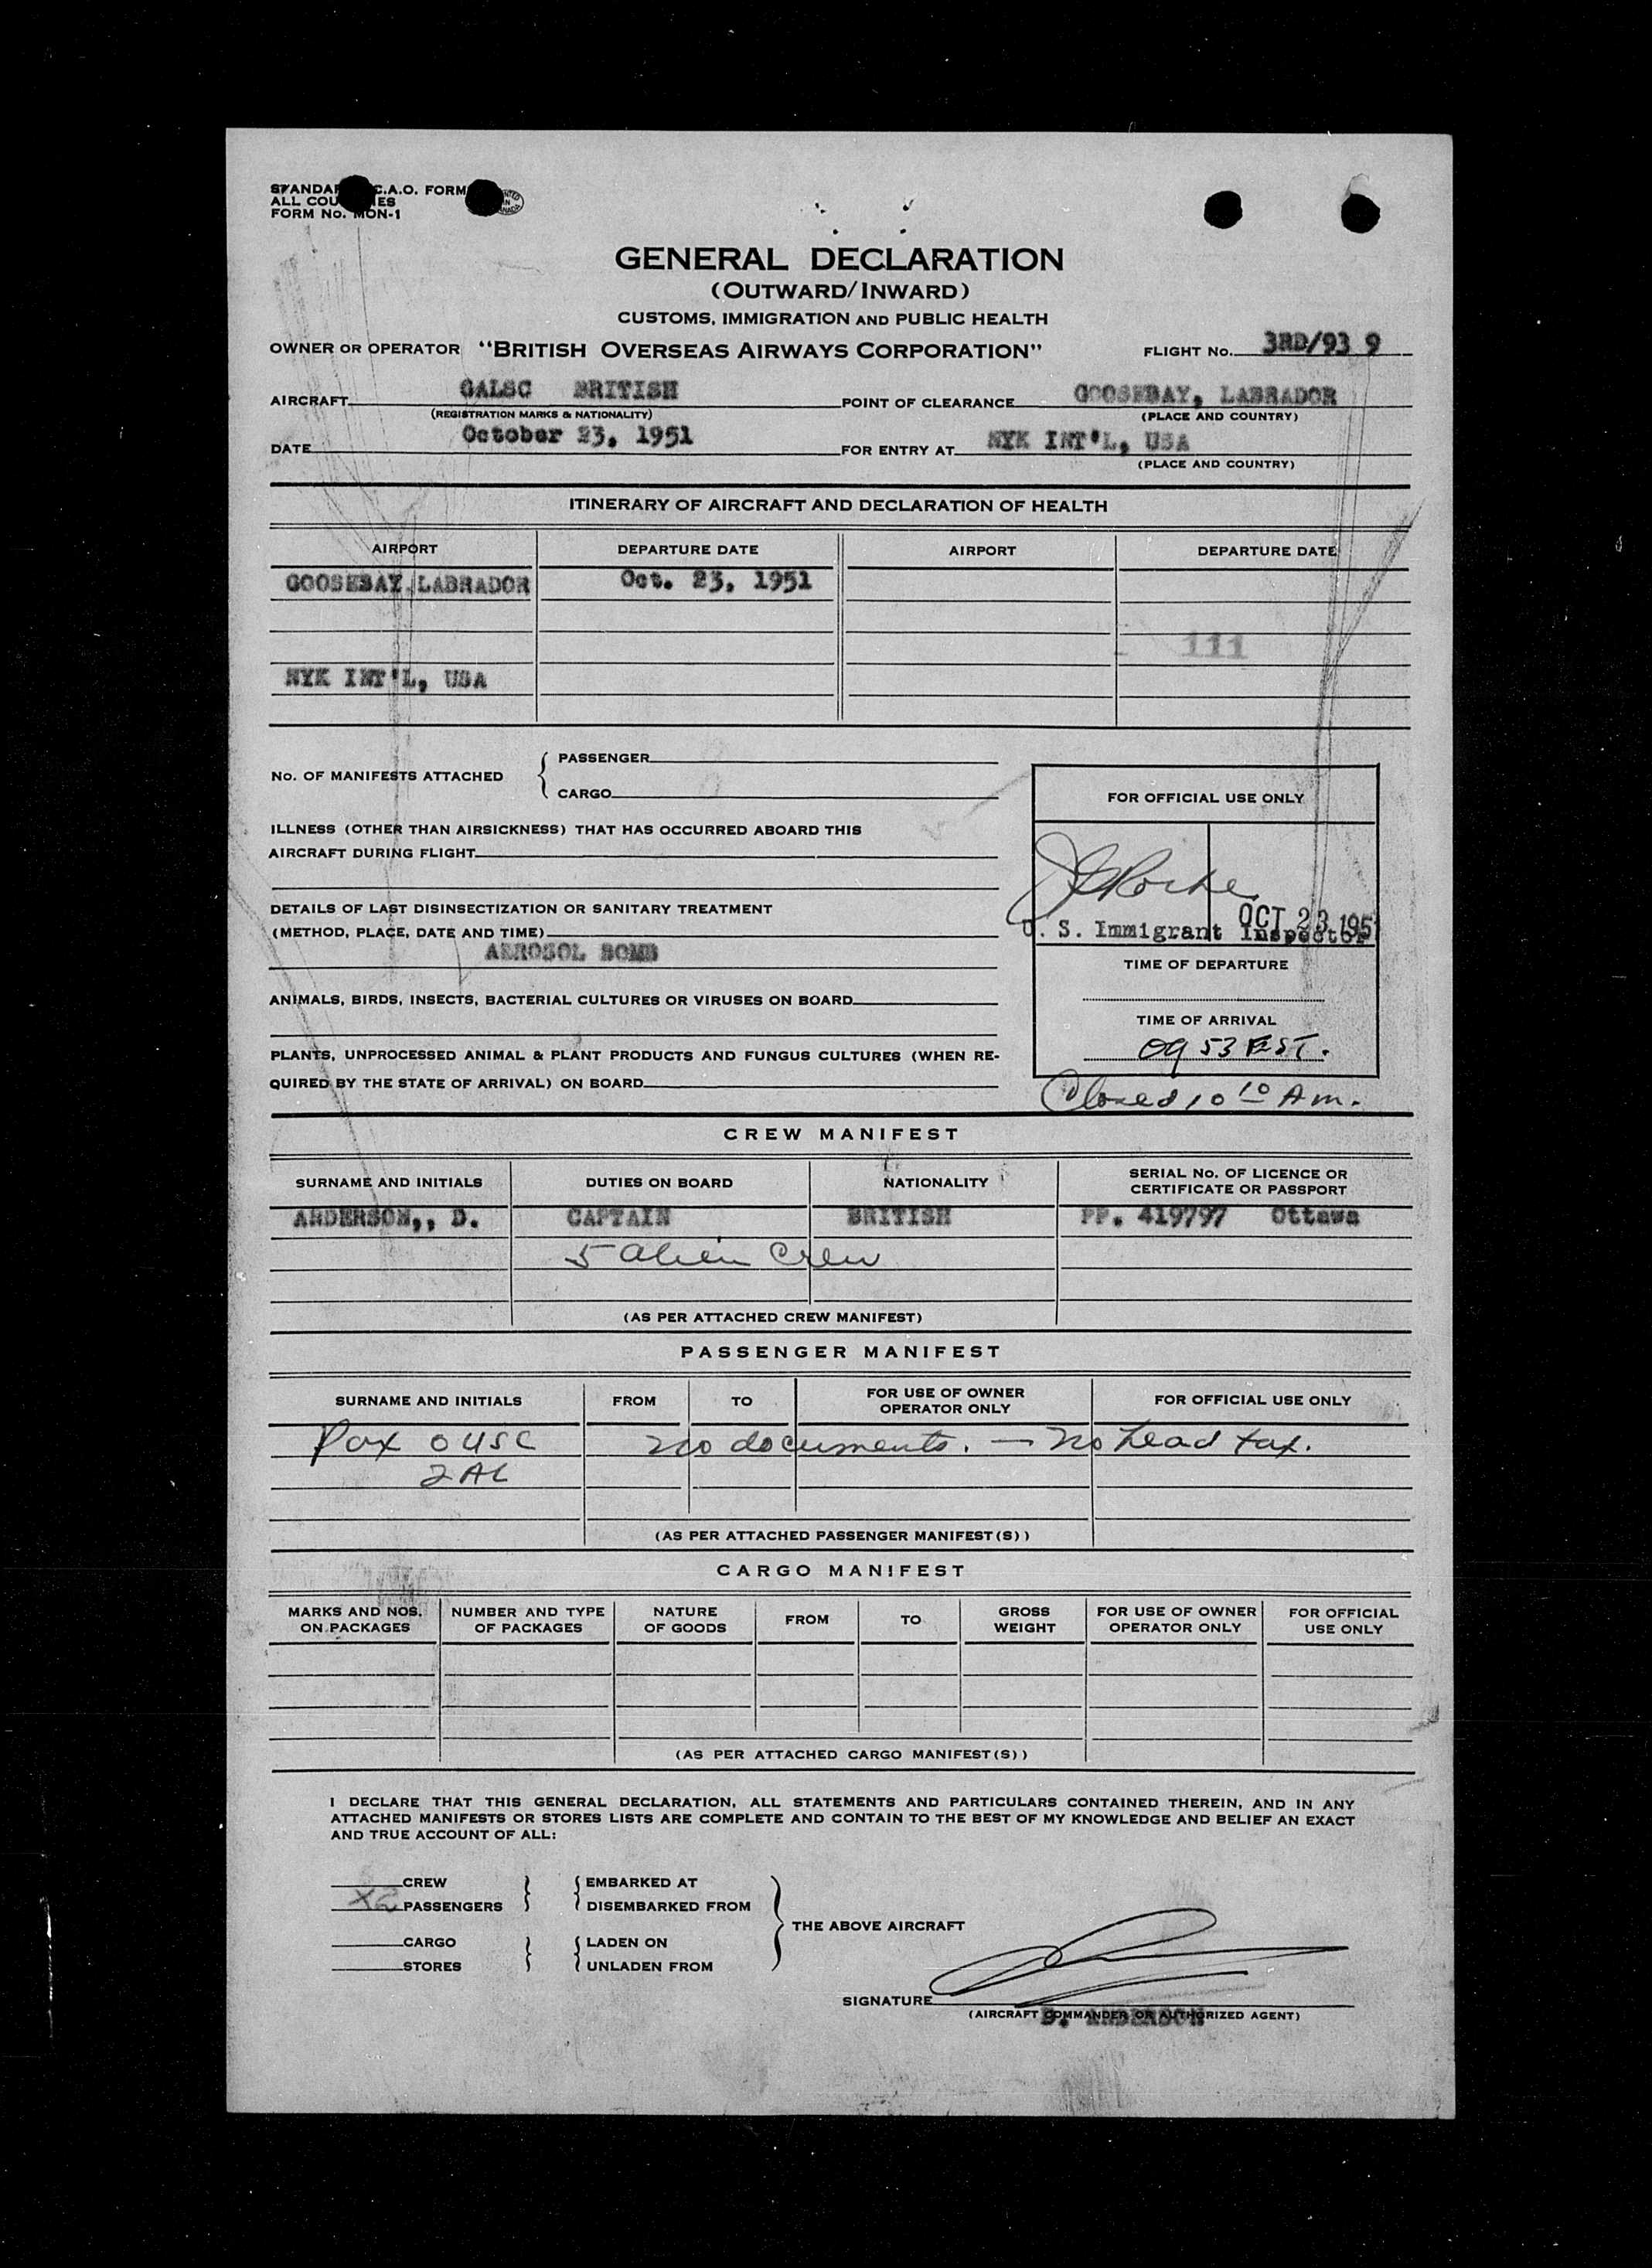 STANDARD I.C.A.O. FORM
ALL COUNTRIES
FORM No. MON-1
GENERAL DECLARATION
(OUTWARD/INWARD)
CUSTOMS, IMMIGRATION AND PUBLIC HEALTH
OWNER OR OPERATOR "BRITISH OVERSEAS AIRWAYS CORPORATION" FLIGHT No. 3RD/93 9
AIRCRAFT GALSC BRITISH POINT OF CLEARANCE GOOSEBAY, LABRADOR
(REGISTRATION MARKS & NATIONALITY) (PLACE AND COUNTRY)
DATE October 23, 1951 FOR ENTRY AT NYK INT'L, USA
(PLACE AND COUNTRY)
ITINERARY OF AIRCRAFT AND DECLARATION OF HEALTH
AIRPORT DEPARTURE DATE AIRPORT DEPARTURE DATE
GOOSEBAY, LABRADOR Oct. 23, 1951
111
NYK INT'L, USA
No. OF MANIFESTS ATTACHED { PASSENGER
CARGO
FOR OFFICIAL USE ONLY
ILLNESS (OTHER THAN AIRSICKNESS) THAT HAS OCCURRED ABOARD THIS
AIRCRAFT DURING FLIGHT
DETAILS OF LAST DISINSECTIZATION OR SANITARY TREATMENT
(METHOD, PLACE, DATE AND TIME)
AEROSOL BOMB
OCT 23 1951
U. S. Immigrant Inspector
TIME OF DEPARTURE
ANIMALS, BIRDS, INSECTS, BACTERIAL CULTURES OR VIRUSES ON BOARD
TIME OF ARRIVAL
0953 EST.
PLANTS, UNPROCESSED ANIMAL & PLANT PRODUCTS AND FUNGUS CULTURES (WHEN RE-
QUIRED BY THE STATE OF ARRIVAL) ON BOARD
Closed 10 10 Am.
CREW MANIFEST
SURNAME AND INITIALS DUTIES ON BOARD NATIONALITY SERIAL No. OF LICENCE OR
CERTIFICATE OR PASSPORT
ANDERSON,, D. CAPTAIN BRITISH PP. 419797 Ottawa
5 alien Crew
(AS PER ATTACHED CREW MANIFEST)
PASSENGER MANIFEST
SURNAME AND INITIALS FROM TO FOR USE OF OWNER
OPERATOR ONLY FOR OFFICIAL USE ONLY
Pax 0 USC no documents. — No head tax.
2 AL
(AS PER ATTACHED PASSENGER MANIFEST(S))
CARGO MANIFEST
MARKS AND NOS.
ON PACKAGES NUMBER AND TYPE
OF PACKAGES NATURE
OF GOODS FROM TO GROSS
WEIGHT FOR USE OF OWNER
OPERATOR ONLY FOR OFFICIAL
USE ONLY
(AS PER ATTACHED CARGO MANIFEST(S))
I DECLARE THAT THIS GENERAL DECLARATION, ALL STATEMENTS AND PARTICULARS CONTAINED THEREIN, AND IN ANY
ATTACHED MANIFESTS OR STORES LISTS ARE COMPLETE AND CONTAIN TO THE BEST OF MY KNOWLEDGE AND BELIEF AN EXACT
AND TRUE ACCOUNT OF ALL:
CREW EMBARKED AT
X2 PASSENGERS DISEMBARKED FROM
THE ABOVE AIRCRAFT
CARGO LADEN ON
STORES UNLADEN FROM
SIGNATURE
(AIRCRAFT COMMANDER OR AUTHORIZED AGENT)
D. ANDERSON